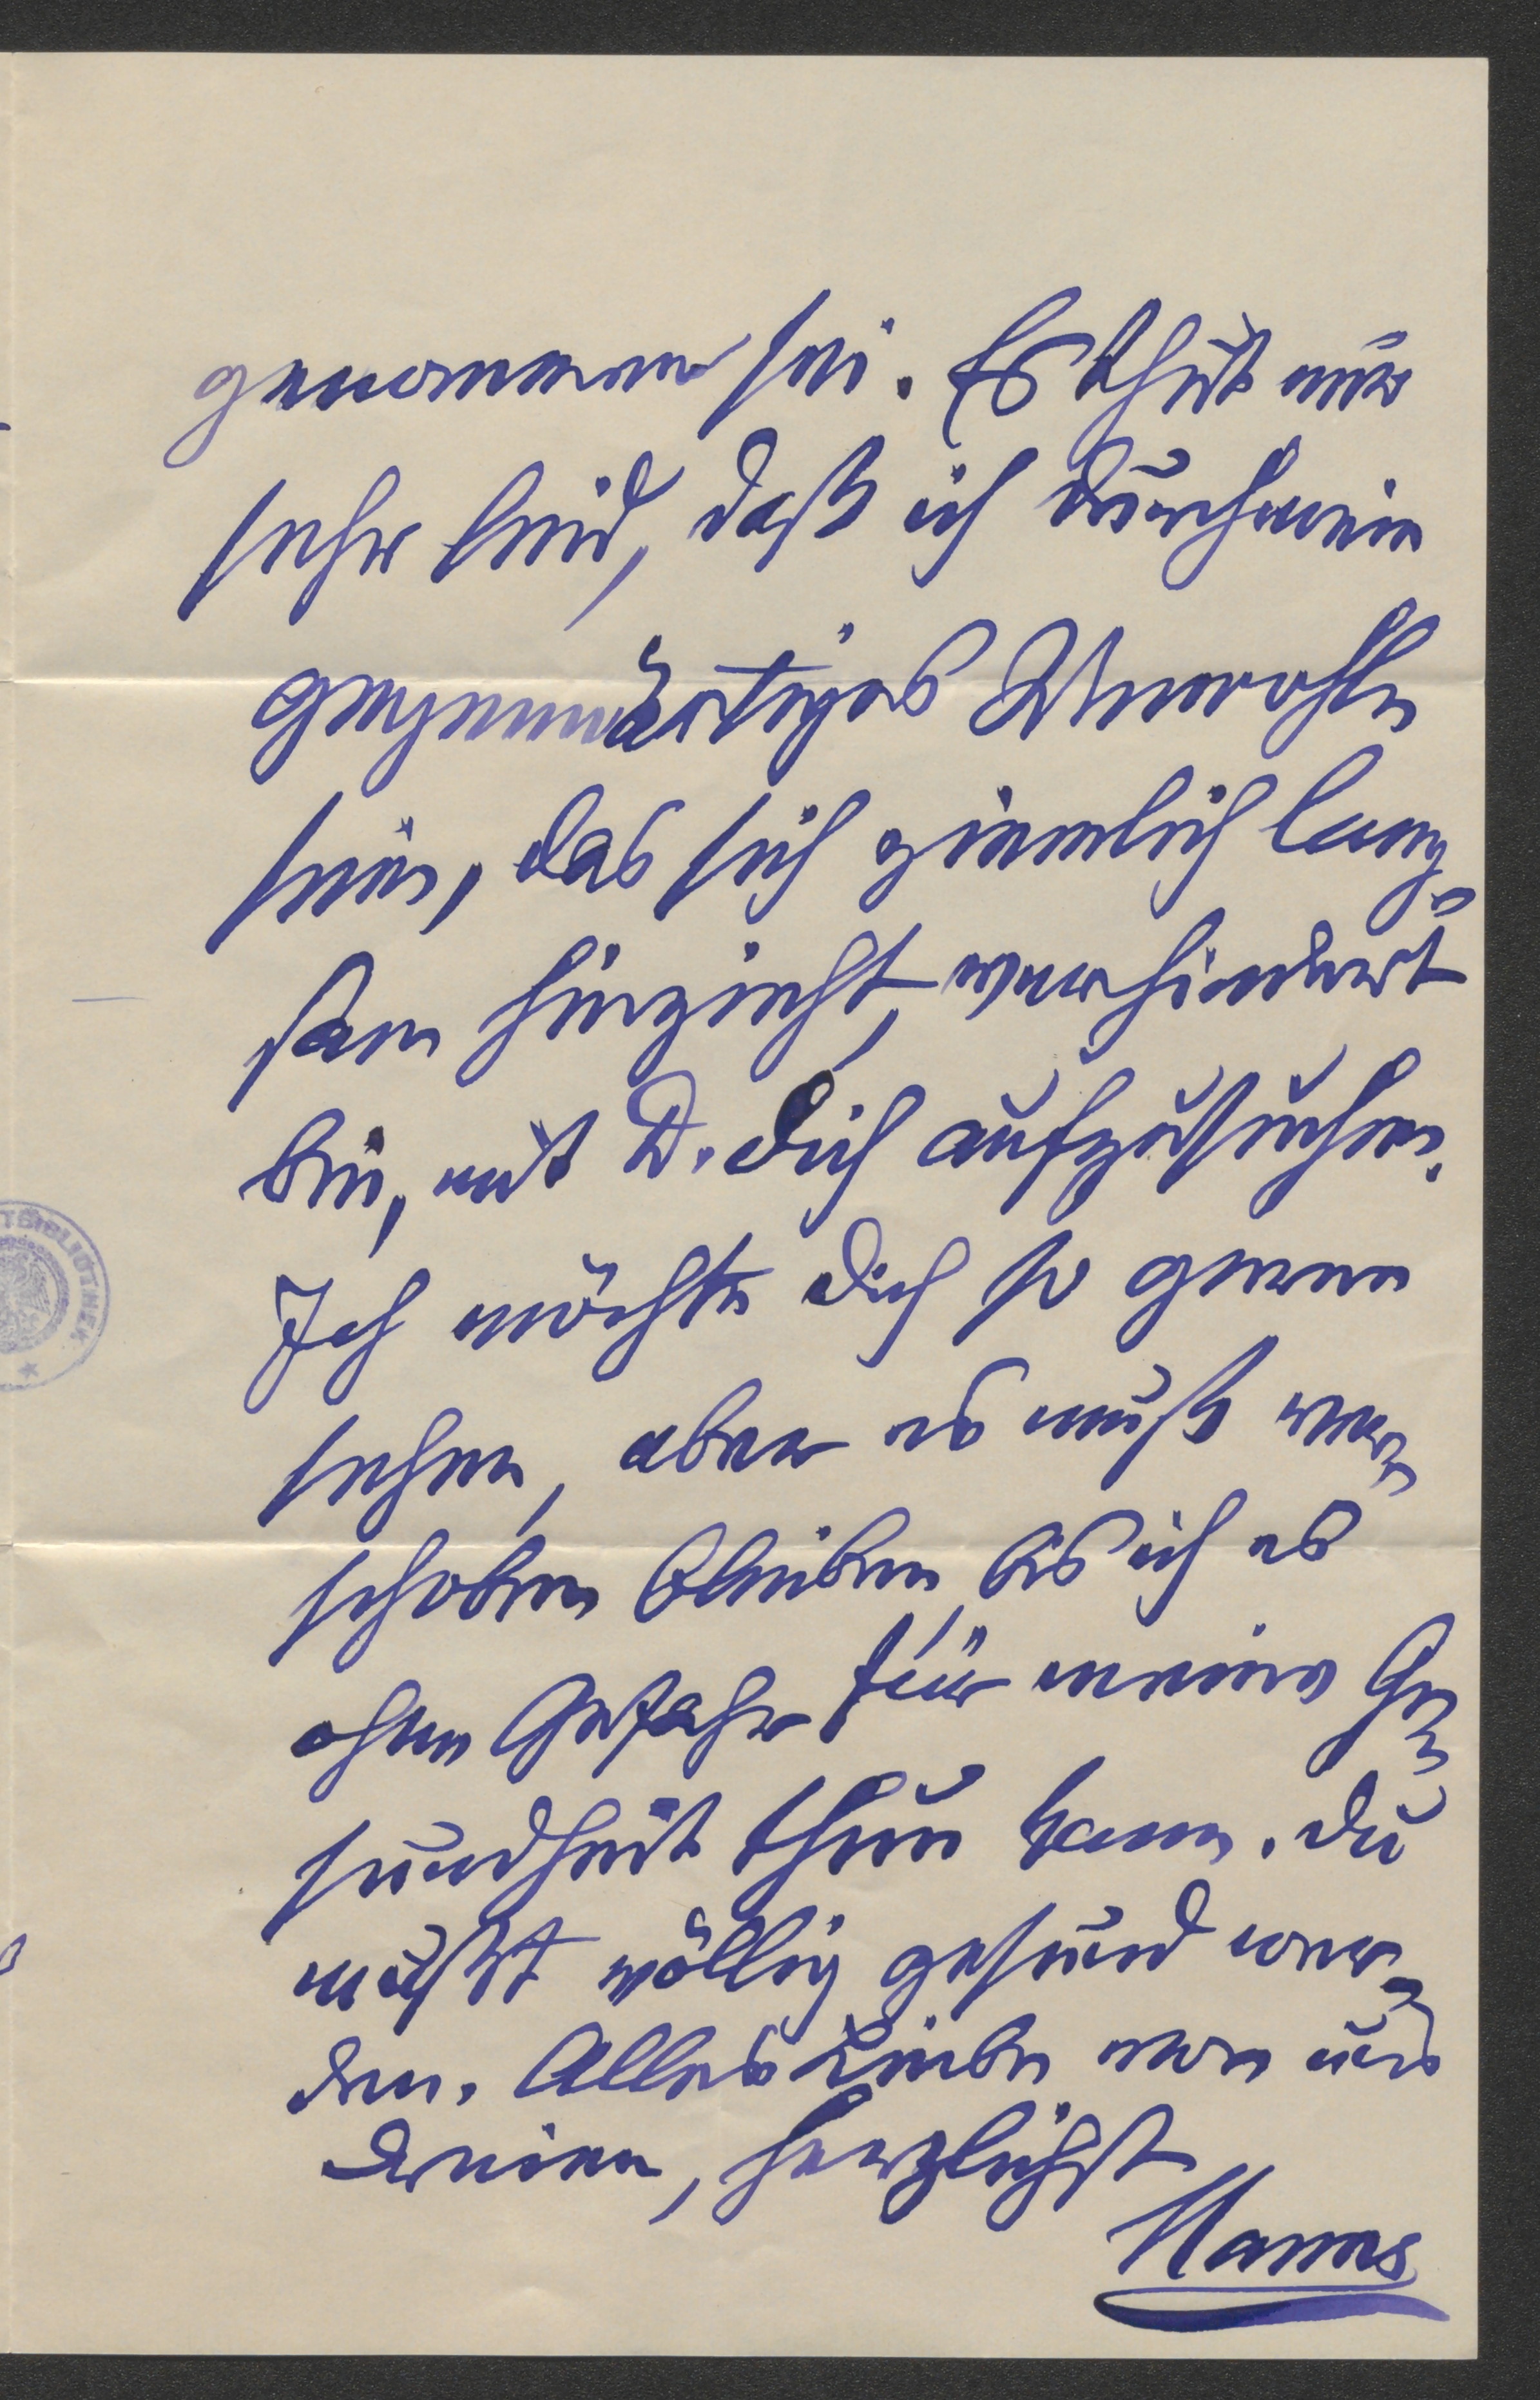 genommen sei. Es thut mir
sehr leid, daß ich durch mein
gegenwärtiges Unwohl-
sein, das sich ziemlich lang-
sam hinzieht, verhindert
bin, mit D. Dich aufzusuchen.
Ich möchte Dich so gerne
sehen, aber es muß ver-
schoben bleiben, bis ich es
ohne Gefahr für meine Ge-
sundheit thun kann. Du
mußt völlig gesund wer-
den. Alles Liebe von uns
dreien, herzlichst
Hanns
TSBIBLIOTHEK